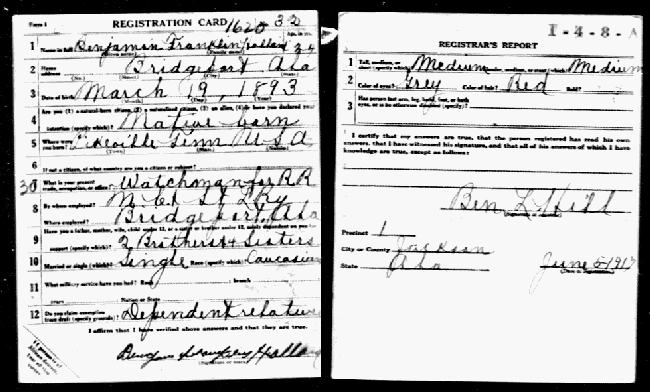 Form 1
REGISTRATION CARD 1620 32
Age, in yrs.
1 Name in full Benjamin Franklin Holland 24
(Given name) (Family name)
2 Home address Bridgeport Ala
(No.) (Street) (City) (State)
3 Date of birth March 19, 1893
(Month) (Day) (Year)
4 Are you (1) a natural-born citizen, (2) a naturalized citizen, (3) an alien, (4) or have you declared your
intention (specify which)? Native born
5 Where were you born? Pikeville Tenn U S A
(Town) (State) (Nation)
6 If not a citizen, of what country are you a citizen or subject?
30
7 What is your present trade, occupation, or office? Watchman for R R
8 By whom employed? N. C. & St L Ry
Where employed? Bridgeport, Ala
9 Have you a father, mother, wife, child under 12, or a sister or brother under 12, solely dependent on you for
support (specify which)? 2 Brothers + 4 Sisters
10 Married or single (which)? Single Race (specify which)? Caucasian
11 What military service have you had? Rank branch
years Nation or State
12 Do you claim exemption from draft (specify grounds)? Dependent relative
I affirm that I have verified above answers and that they are true.
Benjamin Franklin Holland
(Signature or mark)
1-4-8-A
REGISTRAR'S REPORT
1 Tall, medium, or short (specify which)? Medium Slender, medium, or stout (which)? Medium
2 Color of eyes? Grey Color of hair? Red Bald?
3 Has person lost arm, leg, hand, foot, or both
eyes, or is he otherwise disabled (specify)?
I certify that my answers are true, that the person registered has read his own
answers, that I have witnessed his signature, and that all of his answers of which I have
knowledge are true, except as follows:
Ben L Hill
(Signature of registrar)
Precinct 1
City or County Jackson
State Ala June 5-1917
(Date of registration)